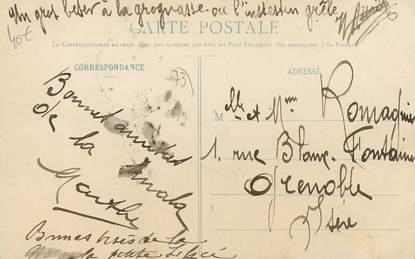 Un gros beser à la grognasse ou l'intestin grêle
40€
CARTE POSTALE
La Correspondance au recto n'est pas acceptée par tous les Pays Etrangers (Se renseigner à la Poste)
CORRESPONDANCE
ADRESSE
73
Bonnes amitiés
de la
Mr et Mme Romag
1, rue Blanc-Fontaine
Grenoble
Isère
Bonnes bises de la
la petite